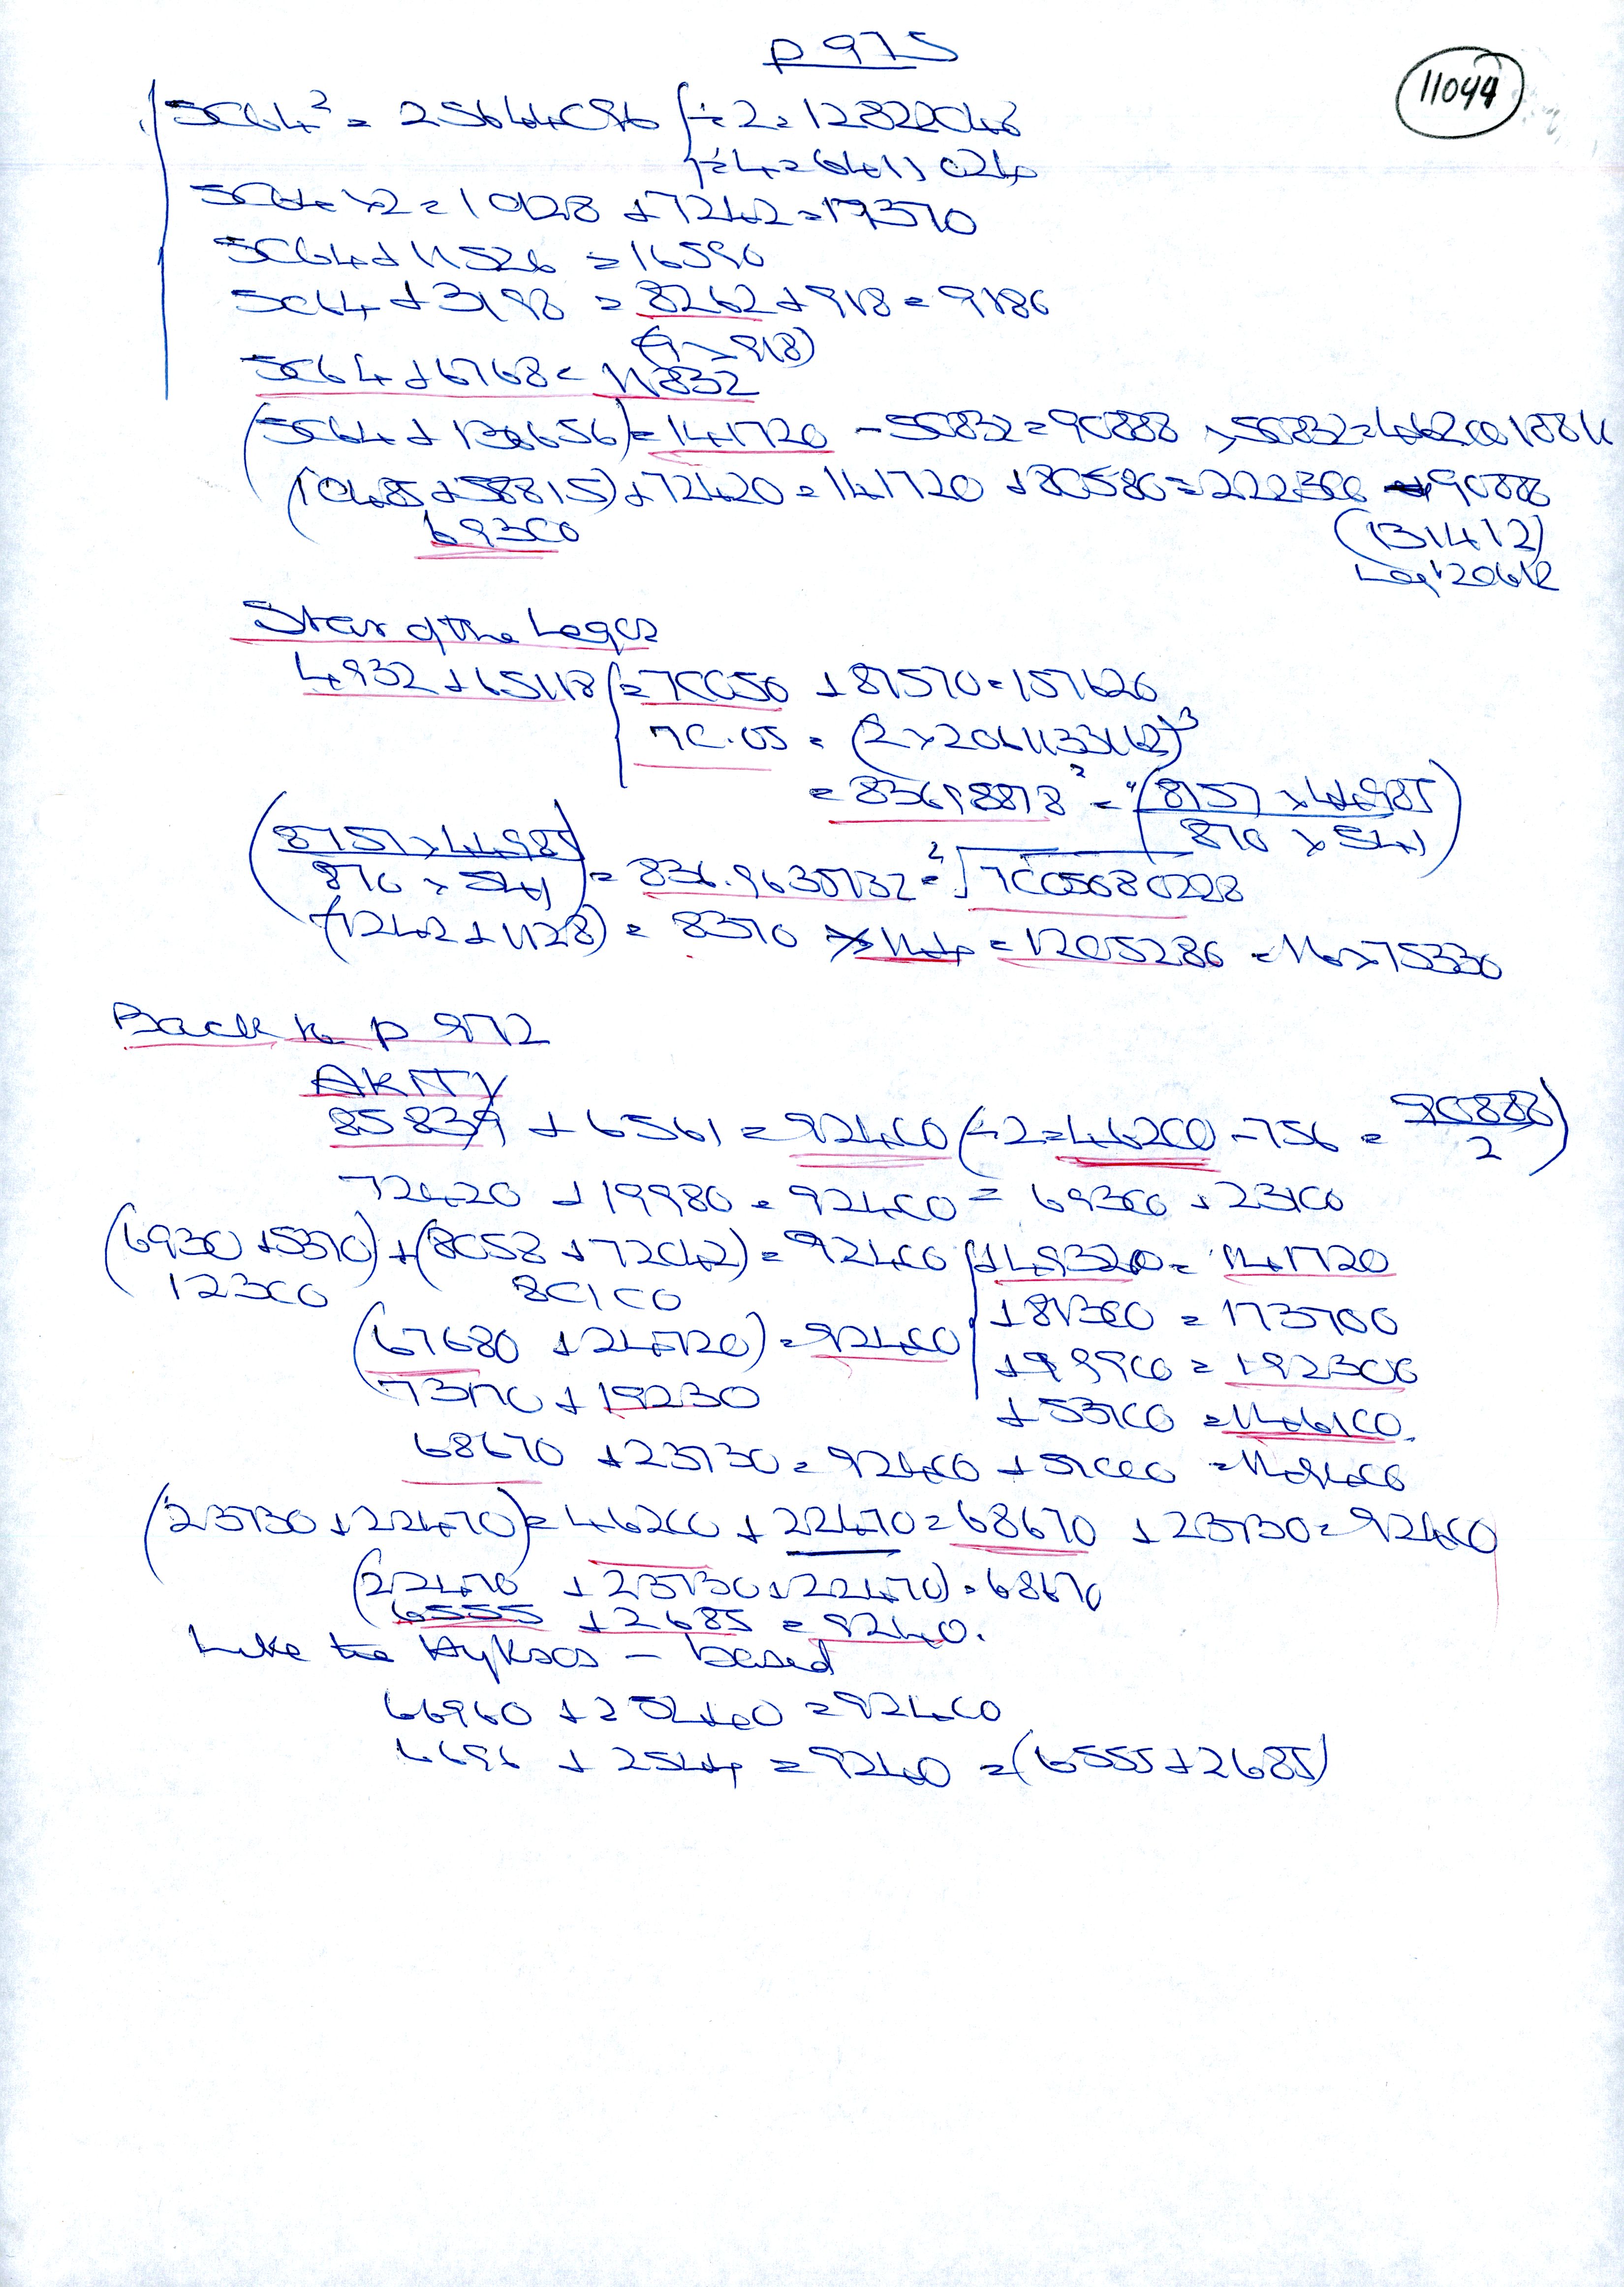 p 975
11044
5064² = 25644096 ÷2 = 12822048
÷4 = 6411024
5064 x2 = 10128 + 7242 = 17370
5064 + 11526 = 16590
5064 + 3198 = 8262 + 918 = 9186
(9 x 918)
5064 + 6768 = 11832
(5064 + 136656) = 141720 - 50832 = 90888 x 50832 =
(10485 + 58815) + 72420 = 141720 + 80580 = 222300 90888
69300 (131412)
Star of the Legos
4932 + 65118 = 70050 + 87570 = 157620
70.05 = (2 x 2.061133162)³
= 8.3698878² = (8757 x 44985
870 x 541)
(8757 x 44985
870 x 541) = 836.9635732 = ²√700568.0228
(7242 + 1128) = 8370 x 144 = 1205280 = 16 x 75330
Back to p 972
AKITY
85839 + 6561 = 92400 (÷2 = 46200 - 756 = 90888
2)
72420 + 19980 = 92400 = 69300 + 23100
(6930 + 5370) + (8058 + 72042) = 92400 + 49320 = 141720
12300 80100 + 81300 = 173700
(67680 + 24720) = 92400 + 99900 = 192300
73170 + 19230 + 53700 = 146100.
68670 + 23730 = 92400 + 57000 = 149400
(23730 + 22470) = 46200 + 22470 = 68670 + 23730 = 92400
(22470 + 23730 + 22470) = 68670
6555 + 2685 = 9240.
Like the Hyksos - based
66960 + 25440 = 92400
6696 + 2544 = 9240 = (6555 + 2685)